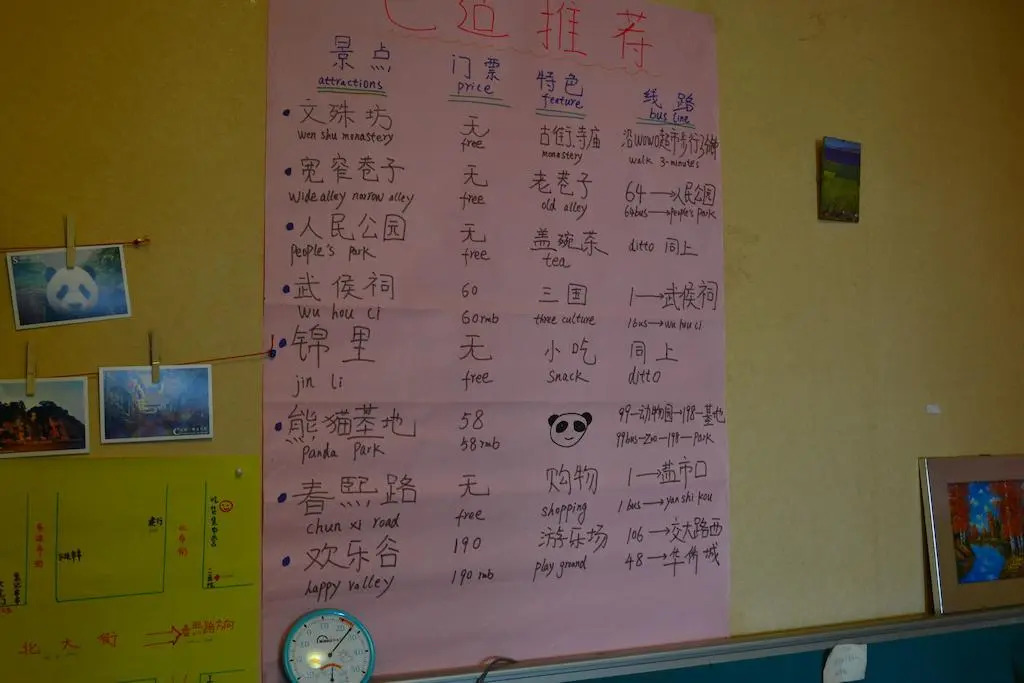 推荐
景点 门票 特色 线路
attractions price feature bus line
文殊坊 无 古街、寺庙 沿wowo超市步行3分钟
wen shu monastery free monastery walk 3-minutes
宽窄巷子 无 老巷子 64→人民公园
wide alley narrow alley free old alley 64bus→people's park
人民公园 无 盖碗茶 ditto 同上
people's park free tea
武侯祠 60 三国 1→武侯祠
wu hou ci 60 rmb three culture 1bus→wu hou ci
锦里 无 小吃 同上
jin li free snack ditto
熊猫基地 58 99→动物园→198→基地
panda park 58 rmb 99bus→zoo→198→park
春熙路 无 购物 1→盐市口
chun xi road free shopping 1 bus→yan shi kou
欢乐谷 190 游乐场 106→交大路西
happy valley 190 mb play ground 48→华侨城
北大街
春熙路方向